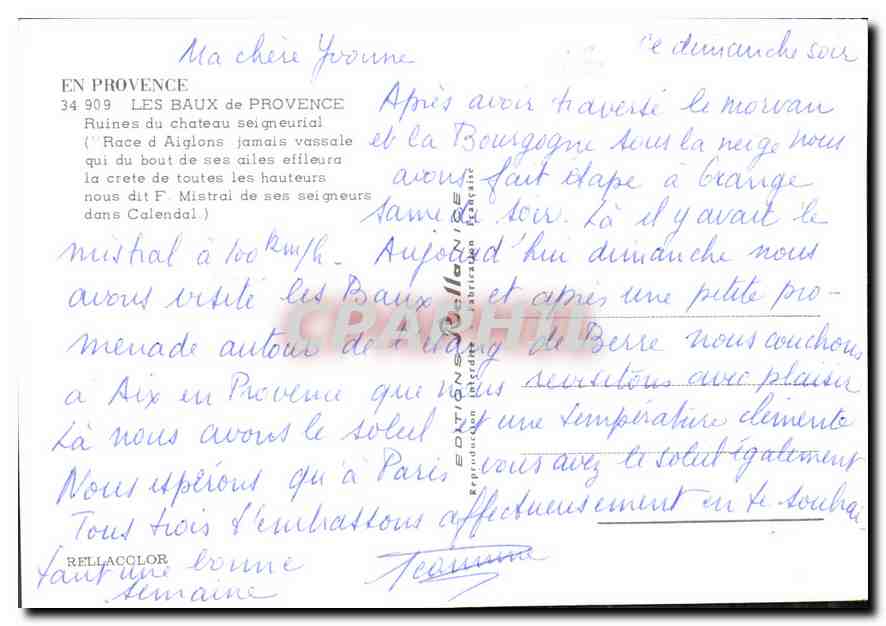 Ma chère Yvonne
ce dimanche soir
EN PROVENCE
34 909 LES BAUX de PROVENCE
Ruines du chateau seigneurial
("Race d Aiglons jamais vassale
qui du bout de ses ailes effleura
la crete de toutes les hauteurs
nous dit F. Mistral de ses seigneurs
dans Calendal.)
Après avoir traversé le morvan
et la Bourgogne sous la neige nous
avons fait étape à Orange
samedi soir. Là il y avait le
mistral à 100 km/h. Aujourd'hui dimanche nous
avons visité les Baux et après une petite pro-
menade autour de l'étang de Berre nous couchons
à Aix en Provence que nous revisitons avec plaisir
Là nous avons le soleil et une température clémente
Nous espérons qu'à Paris vous avez le soleil également
Tous trois t'embrassons affectueusement en te souhai-
tant une bonne
semaine
Jeannine
RELLACOLOR
EDITIONS Rella NICE
Reproduction interdite Fabrication Française
CPAPHIL